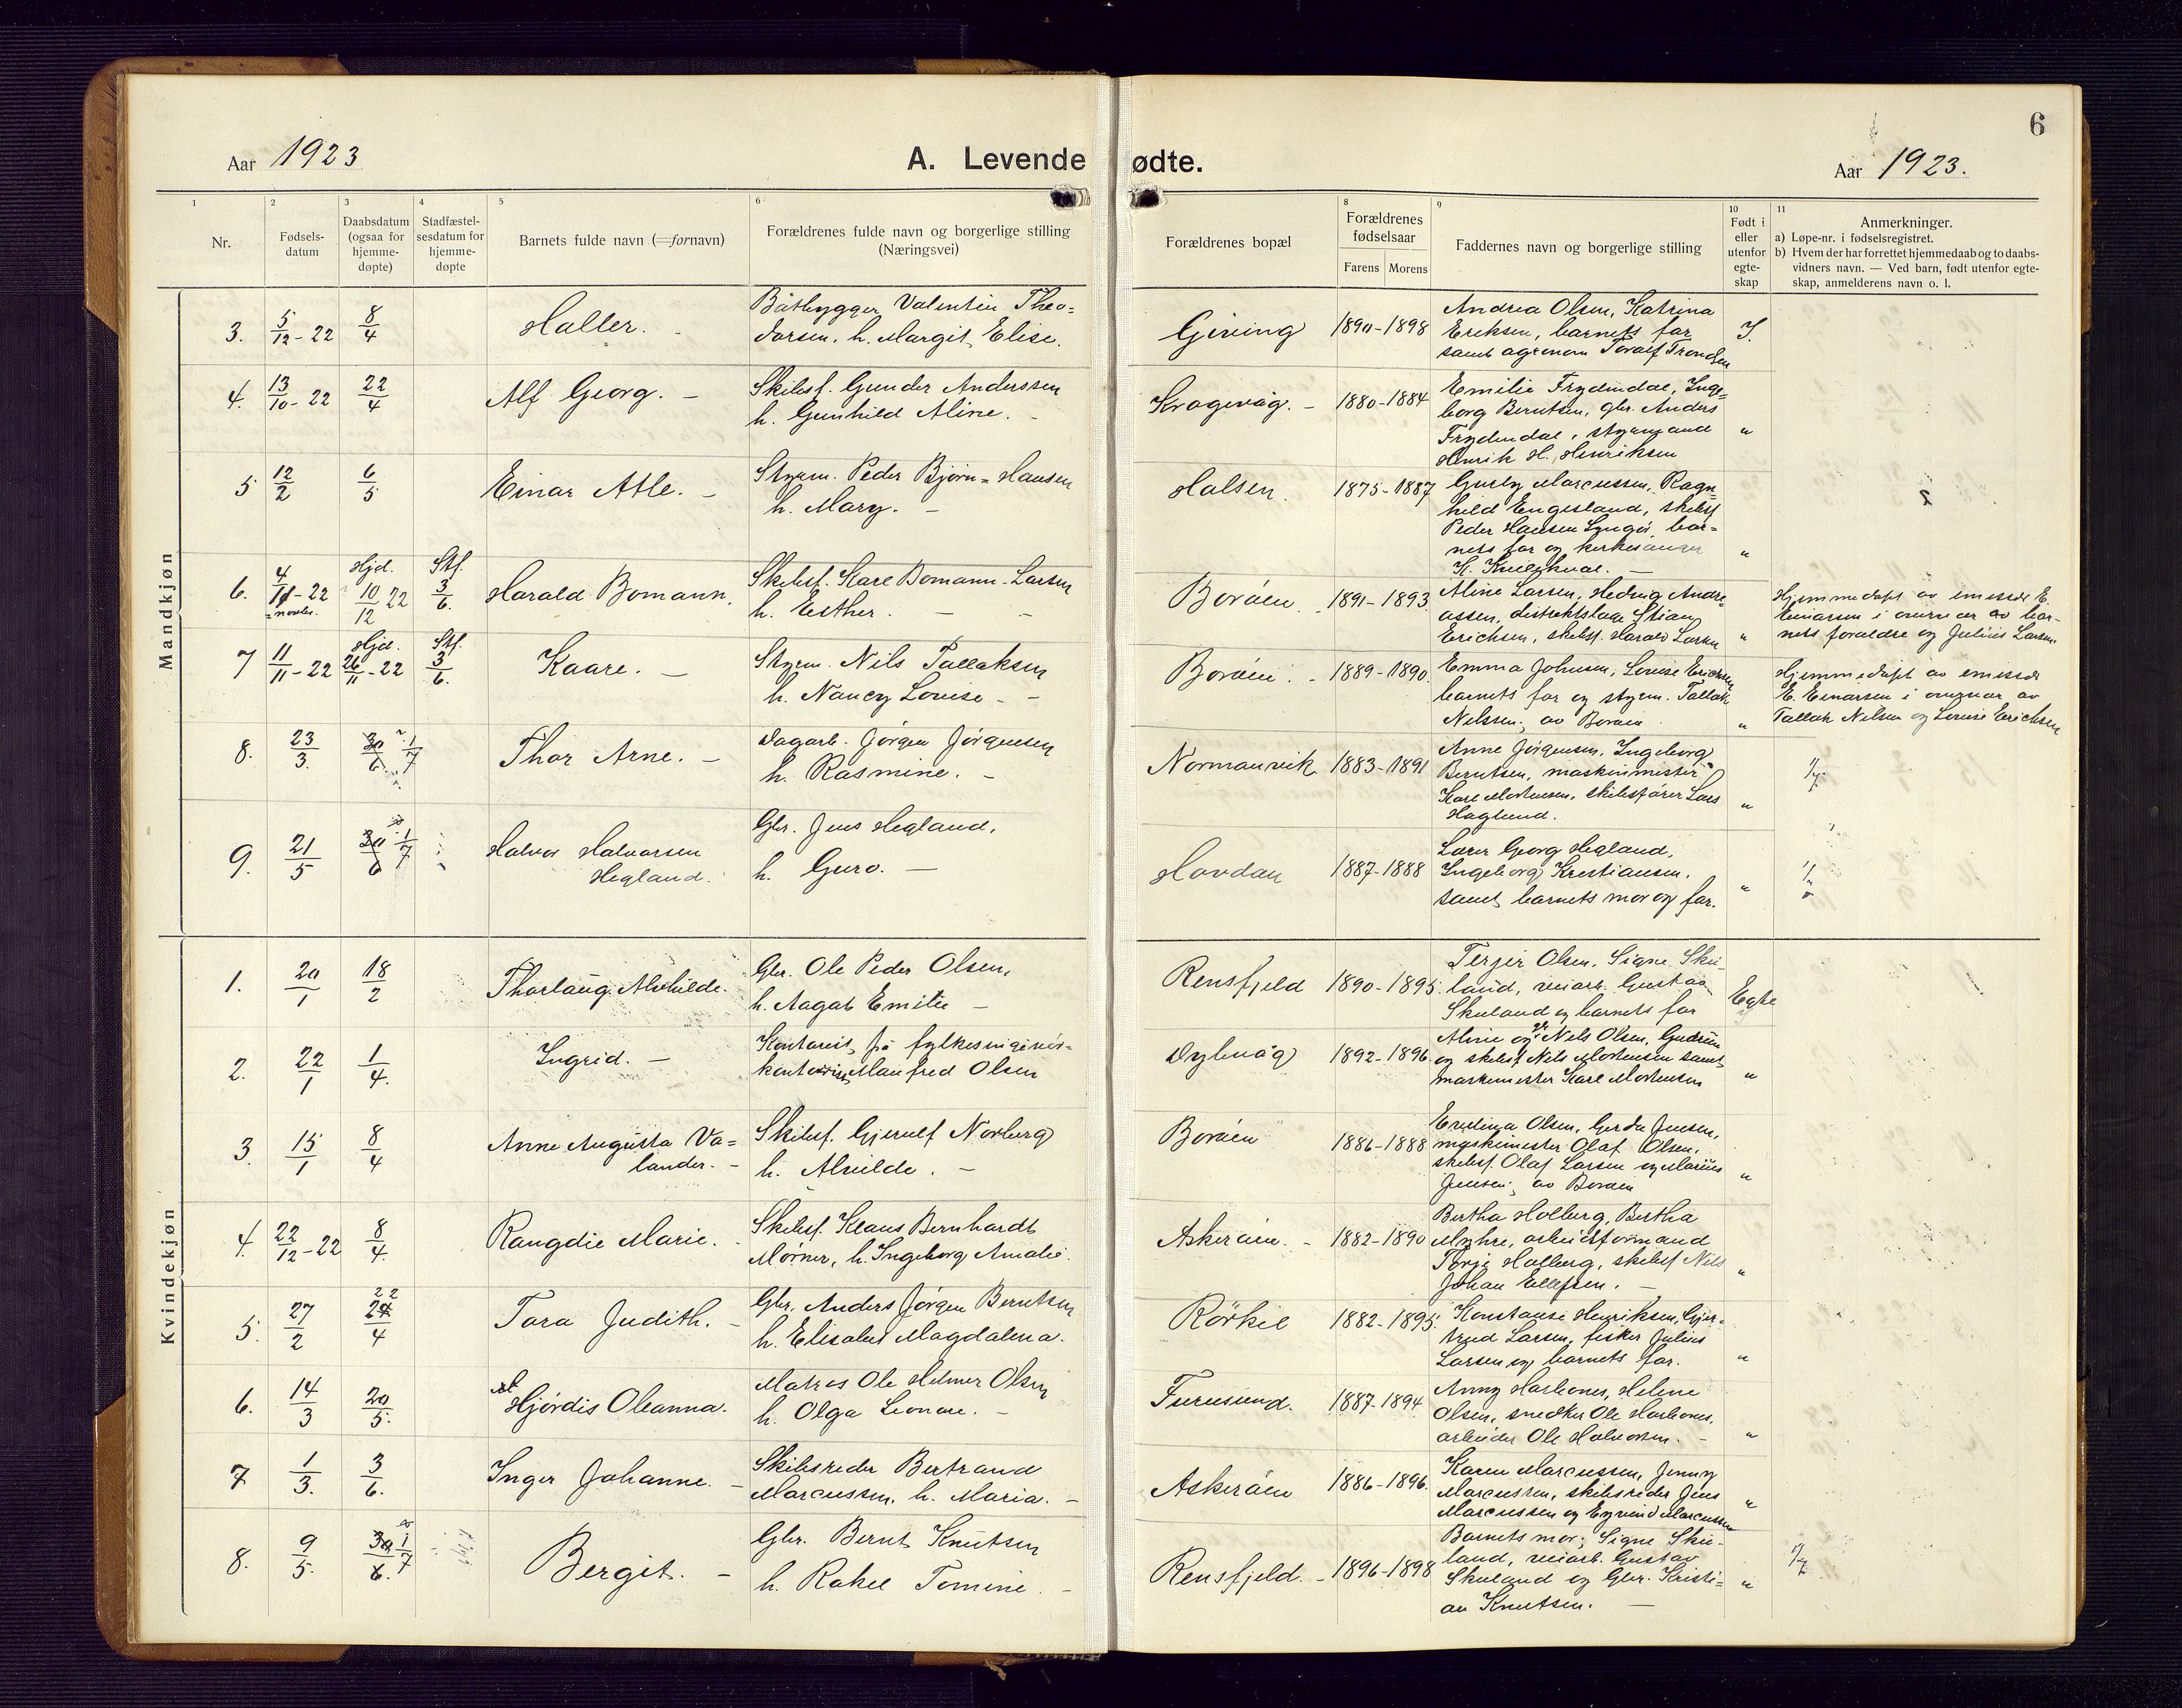 6
Aar 1923
A. Levende ødte.
Aar 1923.
1 2 3 4 5 6 8 9 10 11
Nr.
Fødsels-
datum
Daabsdatum
(ogsaa for
hjemme-
døpte)
Stadfæstel-
sesdatum for
hjemme-
døpte
Barnets fulde navn (=fornavn)
Forældrenes fulde navn og borgerlige stilling
(Næringsvei)
Forældrenes bopæl
Forældrenes
fødselsaar
Farens Morens
Faddernes navn og borgerlige stilling
Født i
eller
utenfor
egte-
skap
Anmerkninger.
a) Løpe-nr. i fødselsregistret.
b) Hvem der har forrettet hjemmedaab og to daabs-
vidners navn. — Ved barn, født utenfor egte-
skap, anmelderens navn o. l.
Mandkjøn
3. 5/12-22 8/4
Haller.
Båtbygger Valentin Theo=
dorsen, h. Margit Elise.
Gjeving 1890-1898
Andrea Olsen, Katrina
Eriksen, barnets far
samt agronom Toralf Trondsen
I.
4. 13/10-22 22/4
Alf Georg. –
Skibsf. Gunder Anderssen
h. Gunhild Aline. –
Kragevåg. – 1880-1884
Emilie Frydendal, Inge=
borg Berntsen, gbr. Anders
Frydendal, styrmand
Henrik H. Henriksen
"
5 12/2 6/5
Einar Atle. –
Styrm. Peder Bjørn=Hansen
h. Mary. –
Halsen. 1875-1887
Marcussen, Ragn=
hild Engesland, skibsf
Peder Hansen Lyngør, bar=
nets far og kirkesanger
K.
"
6. 4/11-22 Hjd. 10/12 22 Stf. 3/6.
= novbr.
Harald Bomann.
Skibsf. Karl Bomann-Larsen
h. Esther. –
Borøen 1891-1893.
Aline Larsen, Hedvig Andre=
assen, distriktslæge Stian
Erichsen, skibsf. Harald Larsen
"
Hjemmedøpt av emissær E.
Einarsen i overvær av bar-
nets forældre og Julius Larsen.
7 11/11-22 Hjd. 26/11-22 Stf. 3/6.
Kaare. –
Styrm. Nils Tallaksen
h. Nancy Louise –
Borøen. – 1889-1890.
Emma Johnsen, Louise Erichsen
barnets far og styrm. Tallak
Nilssen, av Borøen
"
Hjemmedøpt av emissær
E. Einarsen i overvær av
Tallak Nilsen og Louise Erichsen
8. 23/3. 30/6 1/7
Thor Arne. –
Dagarb. Jørgen Jørgensen
h. Rasmine. –
Normanvik 1883-1891
Anne Jørgensen, Ingeborg
Berntsen, maskinmester
Karl Mortensen, skibsfører Lars
Haglund.
"
1/7
9. 21/5 30/6 1/7
Halvor Halvorsen
Hegland.
Gbr. Jens Hegland,
h. Guro. –
Hovdan 1887-1888
Lærer Georg Hegland,
Ingeborg Kristiansen,
samt barnets mor og far.
"
Kvindekjøn
1. 20/1 18/2
Thorlaug Alvhilde.
Gbr. Ole Peder Olsen,
h. Aagot Emilie –
Rensfjeld 1890-1895.
Terjer Olsen, Signe Sku-
land, veiarb. Gustav
Skuland og barnets far
Egte
2. 22/1 1/4.
Ingrid. –
Kontorist på fylkesingeniør-
kontoret Manfred Olsen
Dybvåg 1892-1896.
Aline og gr. Nils Olsen, Gudrun
og skibsf. Nils Mortensen samt
maskinmester Karl Mortensen
"
3. 15/1 8/4
Anne Augusta Va=
lander. –
Skibsf. Gjerulf Norberg
h. Alvilde. –
Borøen 1886-1888
Evelina Olsen, Gerda Jensen,
maskinmester Olaf Olsen,
skibsf. Olaf Larsen og Marius
Jensen, av Borøen
"
4. 22/12-22 8/4.
Rangdie Marie.
Skibsf. Klaus Bernhardt
Mørner, h. Ingeborg Amalie.
Askerøen. – 1882-1890
Bertha Holberg, Bertha
Myhre, arbeidsformand
Terje Holberg, skibsf Nils
Johan Ellefsen. –
"
5. 27/2 22 24/4
Tora Judith. –
Gbr. Anders Jørgen Berntsen
h. Elisabet Magdalena.
Rørkil 1882-1895.
Konstanse Henriksen, Gjer-
trud Larsen, fisker Julius
Larsen og barnets far.
"
6. 14/3 20/5.
Hjørdis Oleanna.
Matros Ole Helmer Olsen
h. Olga Leonore. –
Furusund. 1887-1894
Anny Harbones, Helene
Olsen, snedker Ole Harbones,
arbeider Ole Halvorsen. –
"
7 1/3. 3/6.
Inger Johanne. –
Skibsreder Bertrand
Marcussen, h. Maria. –
Askerøen 1886-1896.
Karen Marcussen, Jenny
Marcussen, skibsreder Jens
Marcussen og Eyvind Marcussen
"
8. 9/5. 30/6. 1/7
Bergit. –
Gbr. Bernt Knutsen
h. Rakel Tomine. –
Rensfjeld. – 1896-1898
Barnets mor, Signe Sku-
land, veiarb. Gustav
Skuland og Gbr. Kristi=
an Knutsen. –
"
1/7